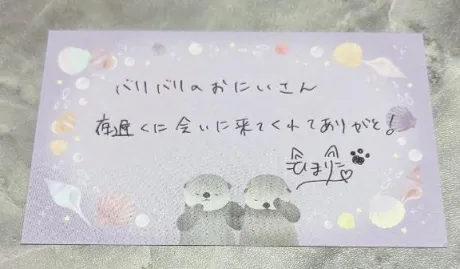 バリバリのおにいさん
夜遅くに会いに来てくれてありがと!
ひまり